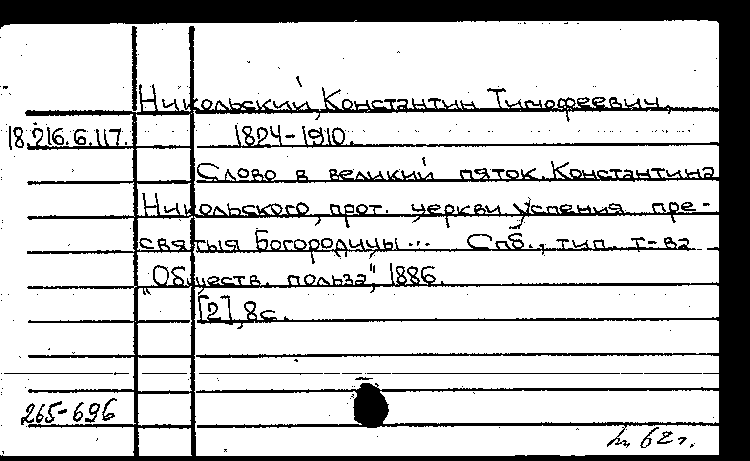 Никольский, Константин Тимофеевич,
18.216.6.117. 1824-1910.
Слово в великий пяток. Константина
Никольского, прот. церкви Успения пре-
святыя Богородицы... Спб., тип. т-ва
„Обществ. польза", 1886.
[2], 8с.
265-696
62 г.